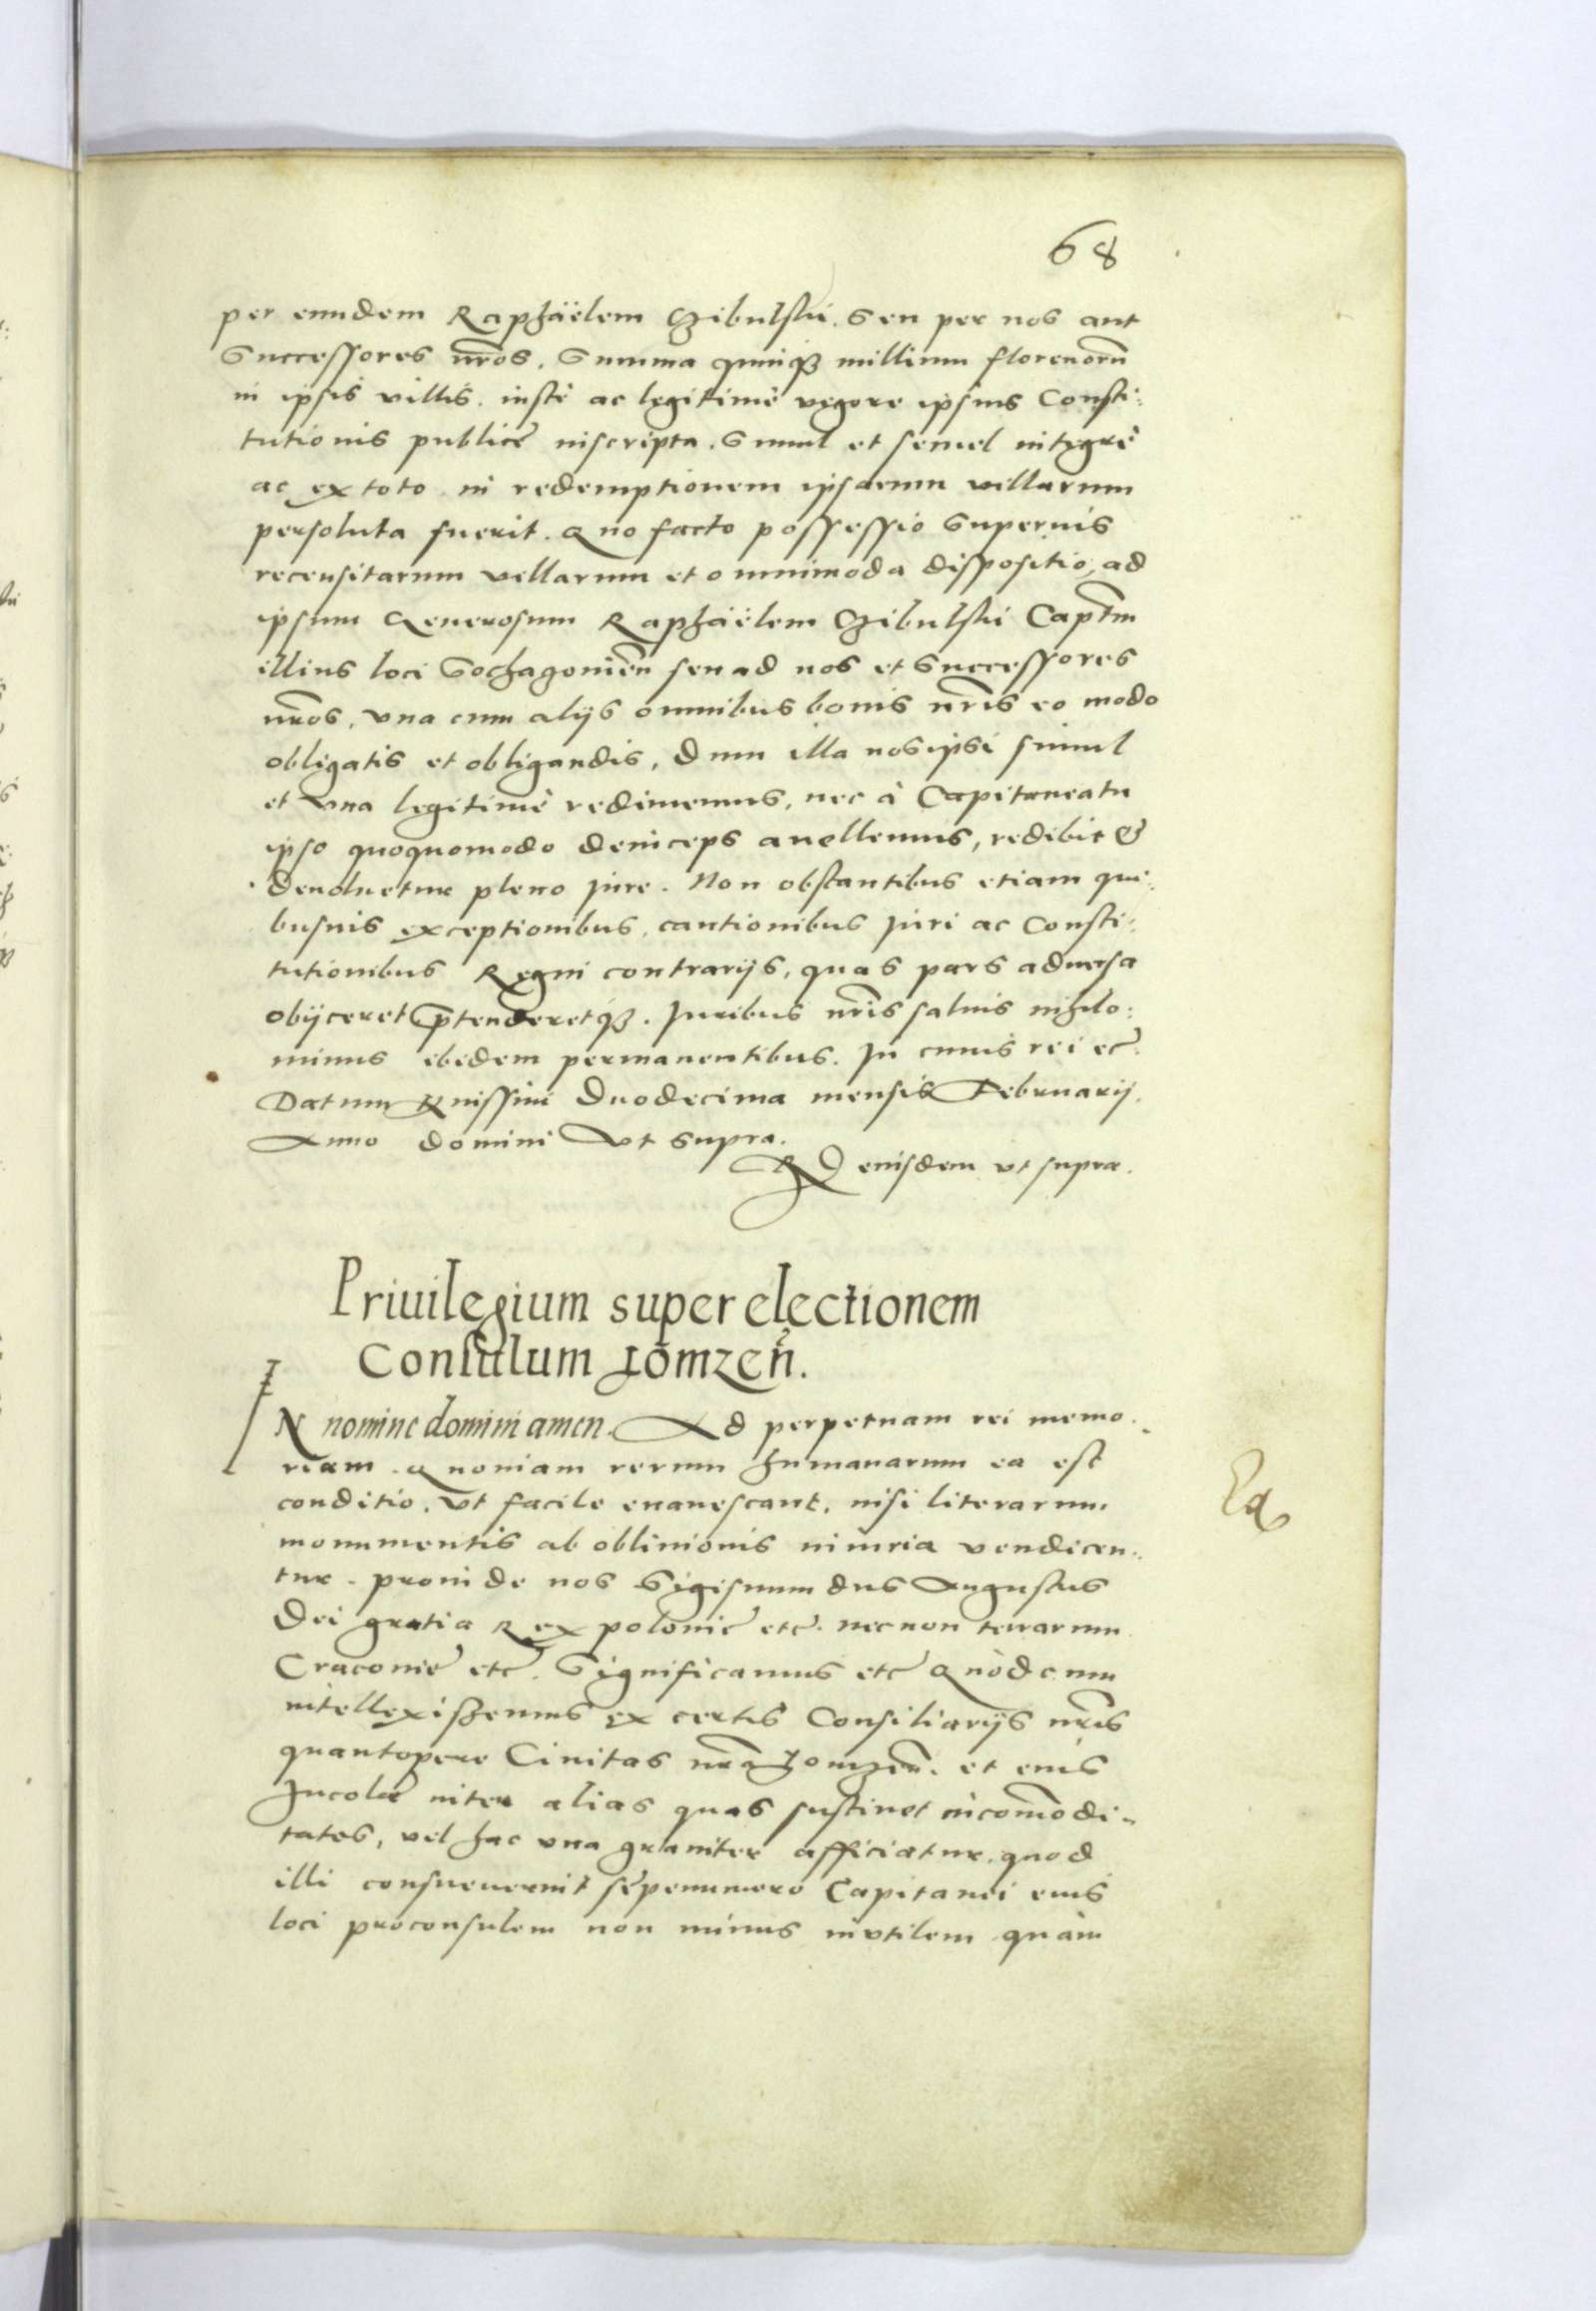 68
per eundem Raphäëlem Czibulski. Seu per nos aut
Successores nr̃os. Summa quinqȝ millium florenorũ
in ipsis villis. iustè ac legitimè vigore ipsius Consti:
tutionis publicę inscripta. Simul et semel integrè
ac ex toto in redemptionem ipsarum villarum
persoluta fuerit. Quo facto possessio Superius
recensitarum villarum et omnimoda dispositio, ad
ipsum Generosum Raphäëlem Czibulski Capt̃m
illius loci Sochaczouien̄ seu ad nos et Successores
nr̃os, vna cum alijs omnibus bonis nr̃is eo modo
obligatis et obligandis, dum illa nos ipsi simul
et vna legitimè redimemus, nec à Capitaneatu
ipso quoquomodo deinceps auellemus, redibit &
deuoluetur pleno jure. Non obstantibus etiam qui:
busuis exceptionibus, cautionibus Juri ac Consti:
tutionibus Regni contrarijs, quas pars aduersa
obijceret p̃tenderetqȝ. Juribus nr̃is saluis nihilo:
minus ibidem permanentibus. In cuius rei etc̃.
Datum Knissini Duodecima mensis Februarij.
Anno domini Vt supra.
RD eiusdem vt supra.
Priuilegium super electionem
Consulum Łomzeñ.
IN nomine domini amen. Ad perpetuam rei memo:
riam. Quoniam rerum humanarum ea est
conditio. Vt facile euanescant, nisi literarum
monumentis ab obliuionis iniuria vendicen:
tur. proinde nos Sigismundus Augustus
Dei gratia Rex polonię etc̃. necnon terrarum
Cracouię etc̃. Significamus etc̃ Quòd cum
intellexiszemus ex certis Consiliarijs nr̃is
quantopere Ciuitas nr̃a Łomzeñ. et eius
Incolę inter alias quas sustinet incom̃odi:
tates, vel hac vna grauiter afficiatur, quod
illi consueuerint sępenumero Capitanei eius
loci proconsulem non minus invtilem quàm